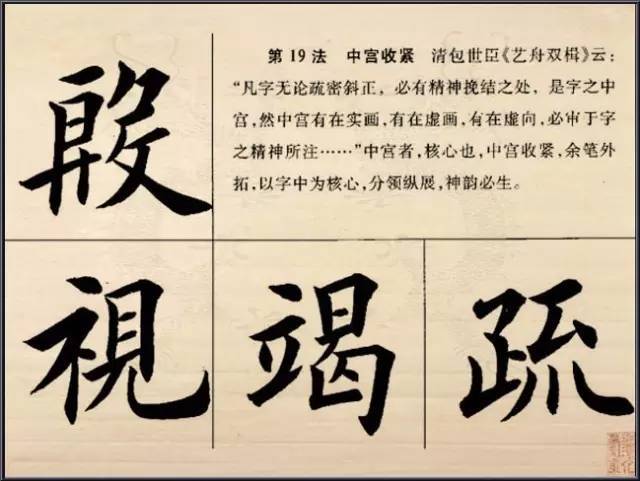 第19法 中宫收紧 清包世臣《艺舟双楫》云：
“凡字无论疏密斜正，必有精神挽结之处，是字之中
宫，然中宫有在实画，有在虚画，有在虚向，必审于字
之精神所注……”中宫者，核心也，中宫收紧，余笔外
拓，以字中为核心，分领纵展，神韵必生。
殷
視 竭 疏